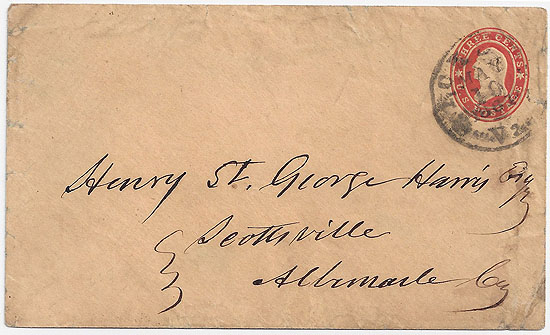 THREE CENTS
U.S. POSTAGE
Henry St. George Harris Esqr
Scottsville
Albemarle Co